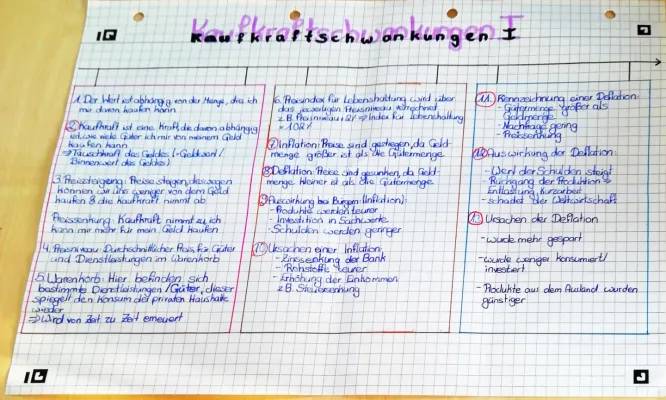 Kaufkraftschwankungen I
1. Der Wert ist abhängig von der Menge, die ich
mir davon kaufen kann
2. Kaufkraft ist eine Kraft, die davon abhängig
ist, wie viele Güter ich mir von meinem Geld
kaufen kann
⇒ Tauschkraft des Geldes (-Geldwert/
Binnenwert des Geldes)
3. Preissteigerung: Preise steigen, deswegen
können wir uns weniger von dem Geld
kaufen & die Kaufkraft nimmt ab
Preissenkung: Kaufkraft nimmt zu, ich
kann mir mehr für mein Geld kaufen
4. Preisniveau: Durchschnittlicher Preis für Güter
und Dienstleistungen im Warenkorb
5. Warenkorb: Hier befinden sich
bestimmte Dienstleistungen/Güter, dieser
spiegelt den Konsum der privaten Haushalte
wieder
⇒ Wird von Zeit zu Zeit erneuert
6. Preisindex für Lebenshaltung wird über
das jeweilige Preisniveau berechnet
z.B. Preisniveau ⇒ Index für Lebenshaltung
102%
7. Inflation: Preise sind gestiegen, da Geld-
menge größer ist als die Gütermenge.
8. Deflation: Preise sind gesunken, da Geld-
menge kleiner ist als die Gütermenge.
9. Auswirkung bei Bürgern (Inflation):
- Produkte werden teurer
- Investition in Sachwerte
- Schulden werden geringer
10. Ursachen einer Inflation:
- Zinssenkung der Bank
- Rohstoffe teurer
- Erhöhung der Einkommen
z.B. Steuersenkung
11. Kennzeichnung einer Deflation:
- Gütermenge größer als
Geldmenge
- Nachfrage gering
- Preissenkung
12. Auswirkung der Deflation:
- Wert der Schulden steigt
- Rückgang der Produktion ⇒
Entlassung, Kurzarbeit
- schadet der Weltwirtschaft
13. Ursachen der Deflation
- wurde mehr gespart
- wurde weniger konsumiert/
investiert
- Produkte aus dem Ausland wurden
günstiger